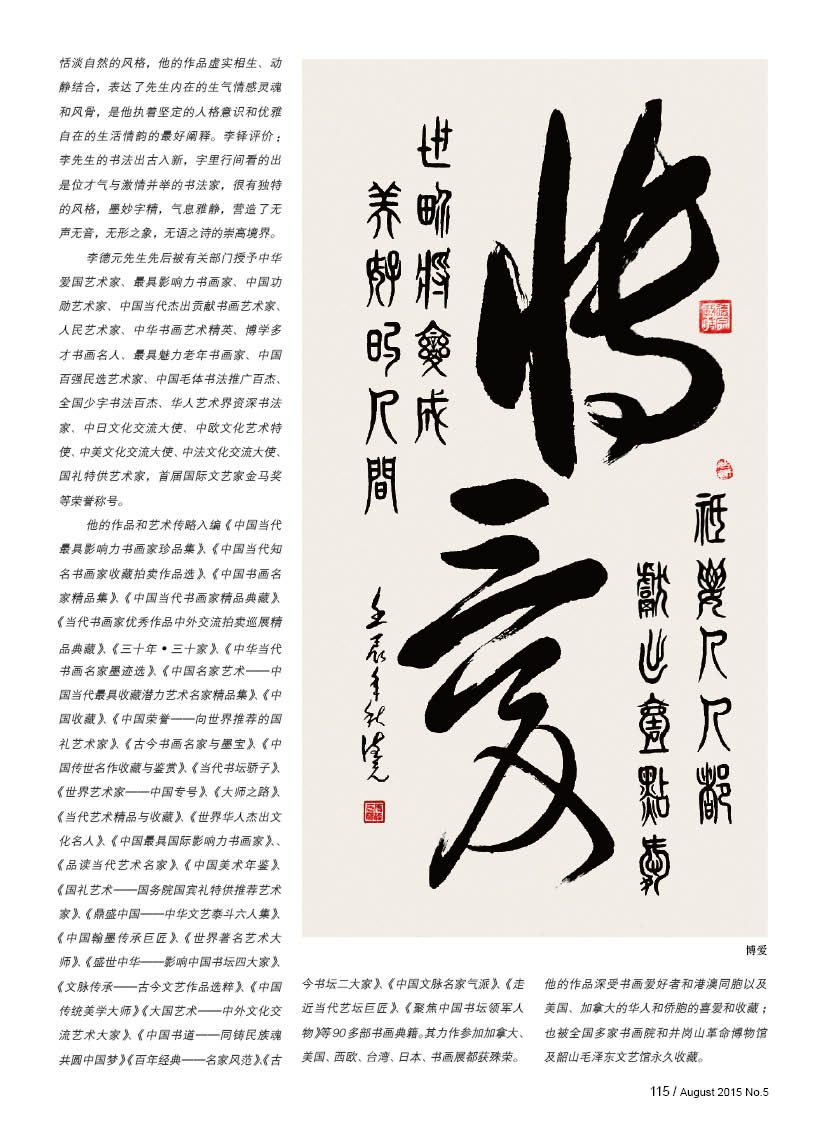 恬淡自然的风格，他的作品虚实相生、动
静结合，表达了先生内在的生气情感灵魂
和风骨，是他执着坚定的人格意识和优雅
自在的生活情韵的最好阐释。李铎评价：
李先生的书法出古入新，字里行间看的出
是位才气与激情并举的书法家，很有独特
的风格，墨妙字精，气息雅静，营造了无
声无音，无形之象，无语之诗的崇高境界。
李德元先生先后被有关部门授予中华
爱国艺术家、最具影响力书画家、中国功
勋艺术家、中国当代杰出贡献书画艺术家、
人民艺术家、中华书画艺术精英、博学多
才书画名人、最具魅力老年书画家、中国
百强民选艺术家、中国毛体书法推广百杰、
全国少字书法百杰、华人艺术界资深书法
家、中日文化交流大使、中欧文化艺术特
使、中美文化交流大使、中法文化交流大使、
国礼特供艺术家，首届国际文艺家金马奖
等荣誉称号。
他的作品和艺术传略入编《中国当代
最具影响力书画家珍品集》、《中国当代知
名书画家收藏拍卖作品选》、《中国书画名
家精品集》、《中国当代书画家精品典藏》、
《当代书画家优秀作品中外交流拍卖巡展精
品典藏》、《三十年·三十家》、《中华当代
书画名家墨迹选》、《中国名家艺术——中
国当代最具收藏潜力艺术名家精品集》、《中
国收藏》、《中国荣誉——向世界推荐的国
礼艺术家》、《古今书画名家与墨宝》、《中
国传世名作收藏与鉴赏》、《当代书坛骄子》、
《世界艺术家——中国专号》、《大师之路》、
《当代艺术精品与收藏》、《世界华人杰出文
化名人》、《中国最具国际影响力书画家》、
《品读当代艺术名家》、《中国美术年鉴》、
《国礼艺术——国务院国宾礼特供推荐艺术
家》、《鼎盛中国——中华文艺泰斗六人集》、
《中国翰墨传承巨匠》、《世界著名艺术大
师》、《盛世中华——影响中国书坛四大家》、
《文脉传承——古今文艺作品选粹》、《中国
传统美学大师》《大国艺术——中外文化交
流艺术大家》、《中国书道——同铸民族魂
共圆中国梦》《百年经典——名家风范》、《古
博爱
祇要人人都
獻出壹點愛
世界將變成
美好的人間
壬辰年秋德元
博爱
今书坛二大家》、《中国文脉名家气派》、《走
近当代艺坛巨匠》、《聚焦中国书坛领军人
物》等90多部书画典籍。其力作参加加拿大、
美国、西欧、台湾、日本、书画展都获殊荣。
他的作品深受书画爱好者和港澳同胞以及
美国、加拿大的华人和侨胞的喜爱和收藏；
也被全国多家书画院和井岗山革命博物馆
及韶山毛泽东文艺馆永久收藏。
115 / August 2015 No.5